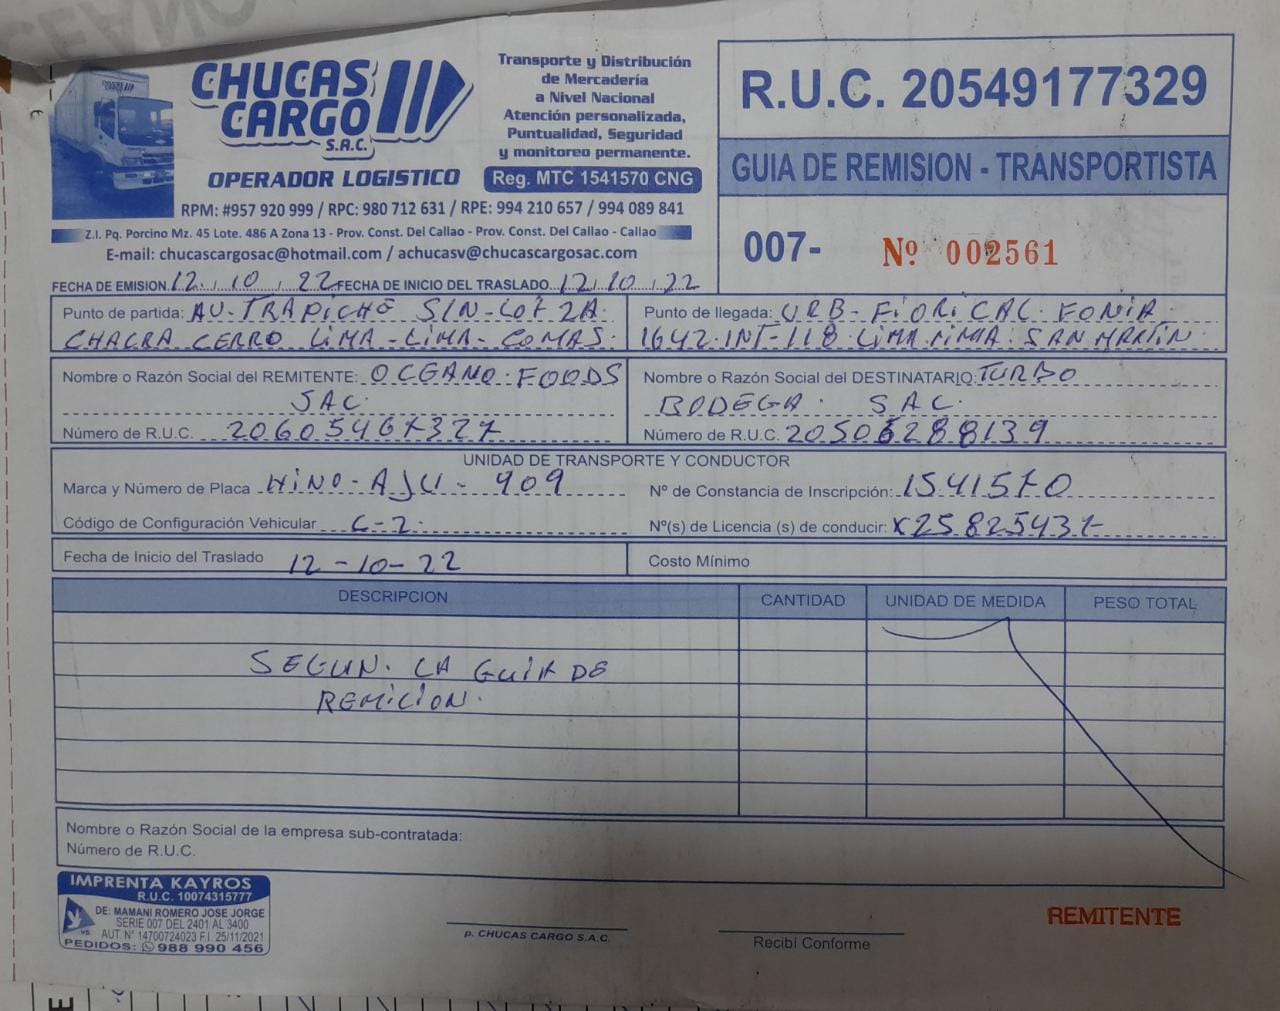 CHUCAS
CARGO
S.A.C.
OPERADOR LOGISTICO
Transporte y Distribución
de Mercadería
a Nivel Nacional
Atención personalizada,
Puntualidad, Seguridad
y monitoreo permanente.
Reg. MTC 1541570 CNG
RPM: #957 920 999 / RPC: 980 712 631 / RPE: 994 210 657 / 994 089 841
Z.I. Pq. Porcino Mz. 45 Lote. 486 A Zona 13 - Prov. Const. Del Callao - Prov. Const. Del Callao - Callao
E-mail: chucascargosac@hotmail.com / achucasv@chucascargosac.com
R.U.C. 20549177329
GUIA DE REMISION - TRANSPORTISTA
007- Nº 002561
FECHA DE EMISION 12, 10, 22 FECHA DE INICIO DEL TRASLADO 12, 10, 22
Punto de partida: AU-TRAPICHE S/N-LOT 2A
CHACRA CERRO LIMA-LIMA-COMAS.
Punto de llegada: URB- FIORI CAL. FONIA
1642-INT-118 LIMA LIMA SAN MARTIN
Nombre o Razón Social del REMITENTE: OCEANO FOODS
SAC.
Número de R.U.C. 20605467327
Nombre o Razón Social del DESTINATARIO: TURBO
BODEGA SAC.
Número de R.U.C. 20506288139
UNIDAD DE TRANSPORTE Y CONDUCTOR
Marca y Número de Placa HINO-AJU-909
Nº de Constancia de Inscripción: 1541570
Código de Configuración Vehicular C-2.
Nº(s) de Licencia (s) de conducir:
Fecha de Inicio del Traslado 12-10-22
Costo Mínimo
DESCRIPCION CANTIDAD UNIDAD DE MEDIDA PESO TOTAL
SEGUN. LA GUIA DE
REMICION.
Nombre o Razón Social de la empresa sub-contratada:
Número de R.U.C.
IMPRENTA KAYROS
R.U.C. 10074315777
DE: MAMANI ROMERO JOSE JORGE
SERIE 007 DEL 2401 AL 3400
AUT. Nº 14700724023 F.I. 25/11/2021
PEDIDOS: 988 990 456
p. CHUCAS CARGO S.A.C.
Recibí Conforme
REMITENTE